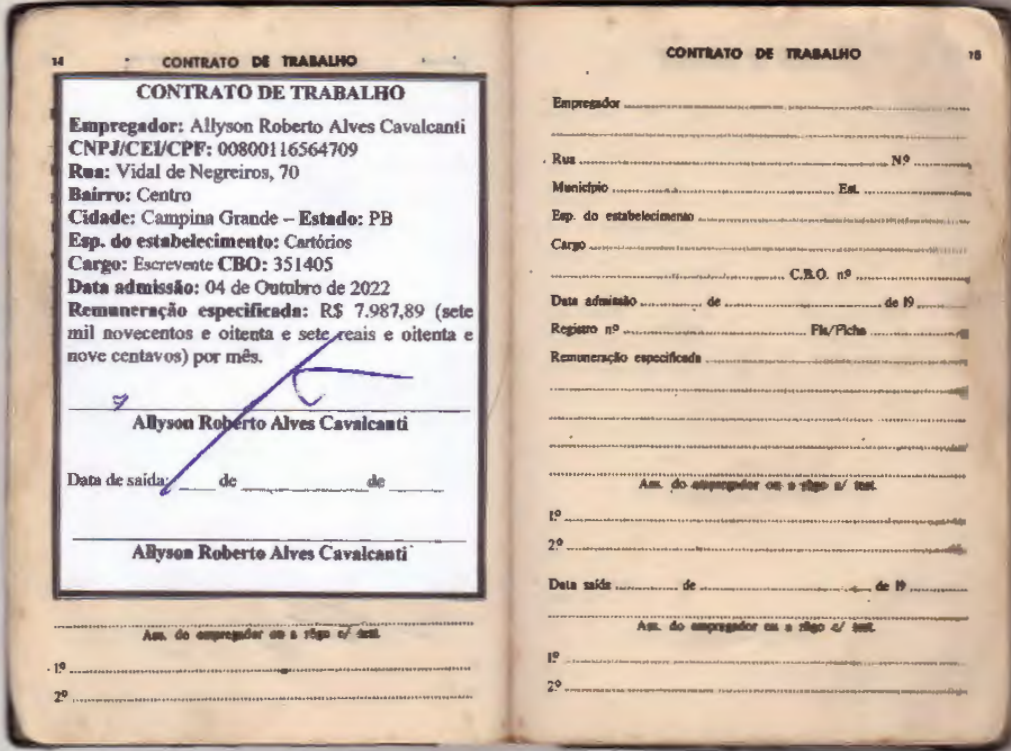 14 CONTRATO DE TRABALHO
CONTRATO DE TRABALHO
Empregador: Allyson Roberto Alves Cavalcanti
CNPJ/CEI/CPF: 00800116564709
Rua: Vidal de Negreiros, 70
Bairro: Centro
Cidade: Campina Grande – Estado: PB
Esp. do estabelecimento: Cartórios
Cargo: Escrevente CBO: 351405
Data admissão: 04 de Outubro de 2022
Remuneração especificada: R$ 7.987,89 (sete
mil novecentos e oitenta e sete reais e oitenta e
nove centavos) por mês.
Allyson Roberto Alves Cavalcanti
Data de saída: ____ de ____________ de _____
Allyson Roberto Alves Cavalcanti
Ass. do empregador ou a rôgo c/ test.
1º
2º
CONTRATO DE TRABALHO 15
Empregador
Rua Nº
Município Est.
Esp. do estabelecimento
Cargo
C.B.O. nº
Data admissão de de 19
Registro nº Fls/Ficha
Remuneração especificada
Ass. do empregador ou a rôgo c/ test.
1º
2º
Data saída de de 19
Ass. do empregador ou a rôgo c/ test.
1º
2º